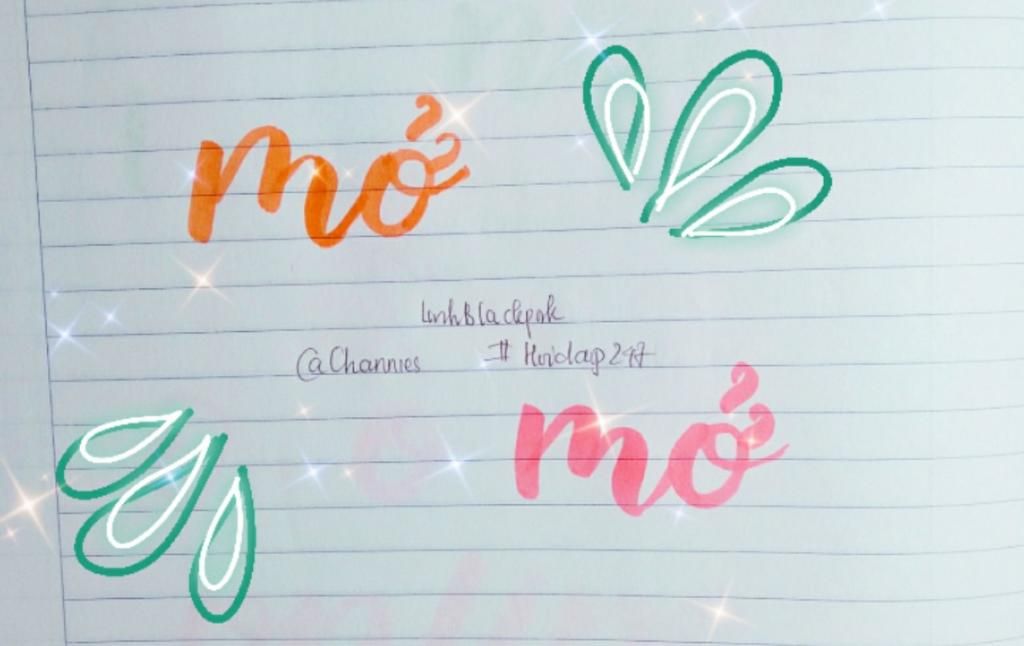 mở
LinhBlackpink
@Channies #Hoidap247
mở